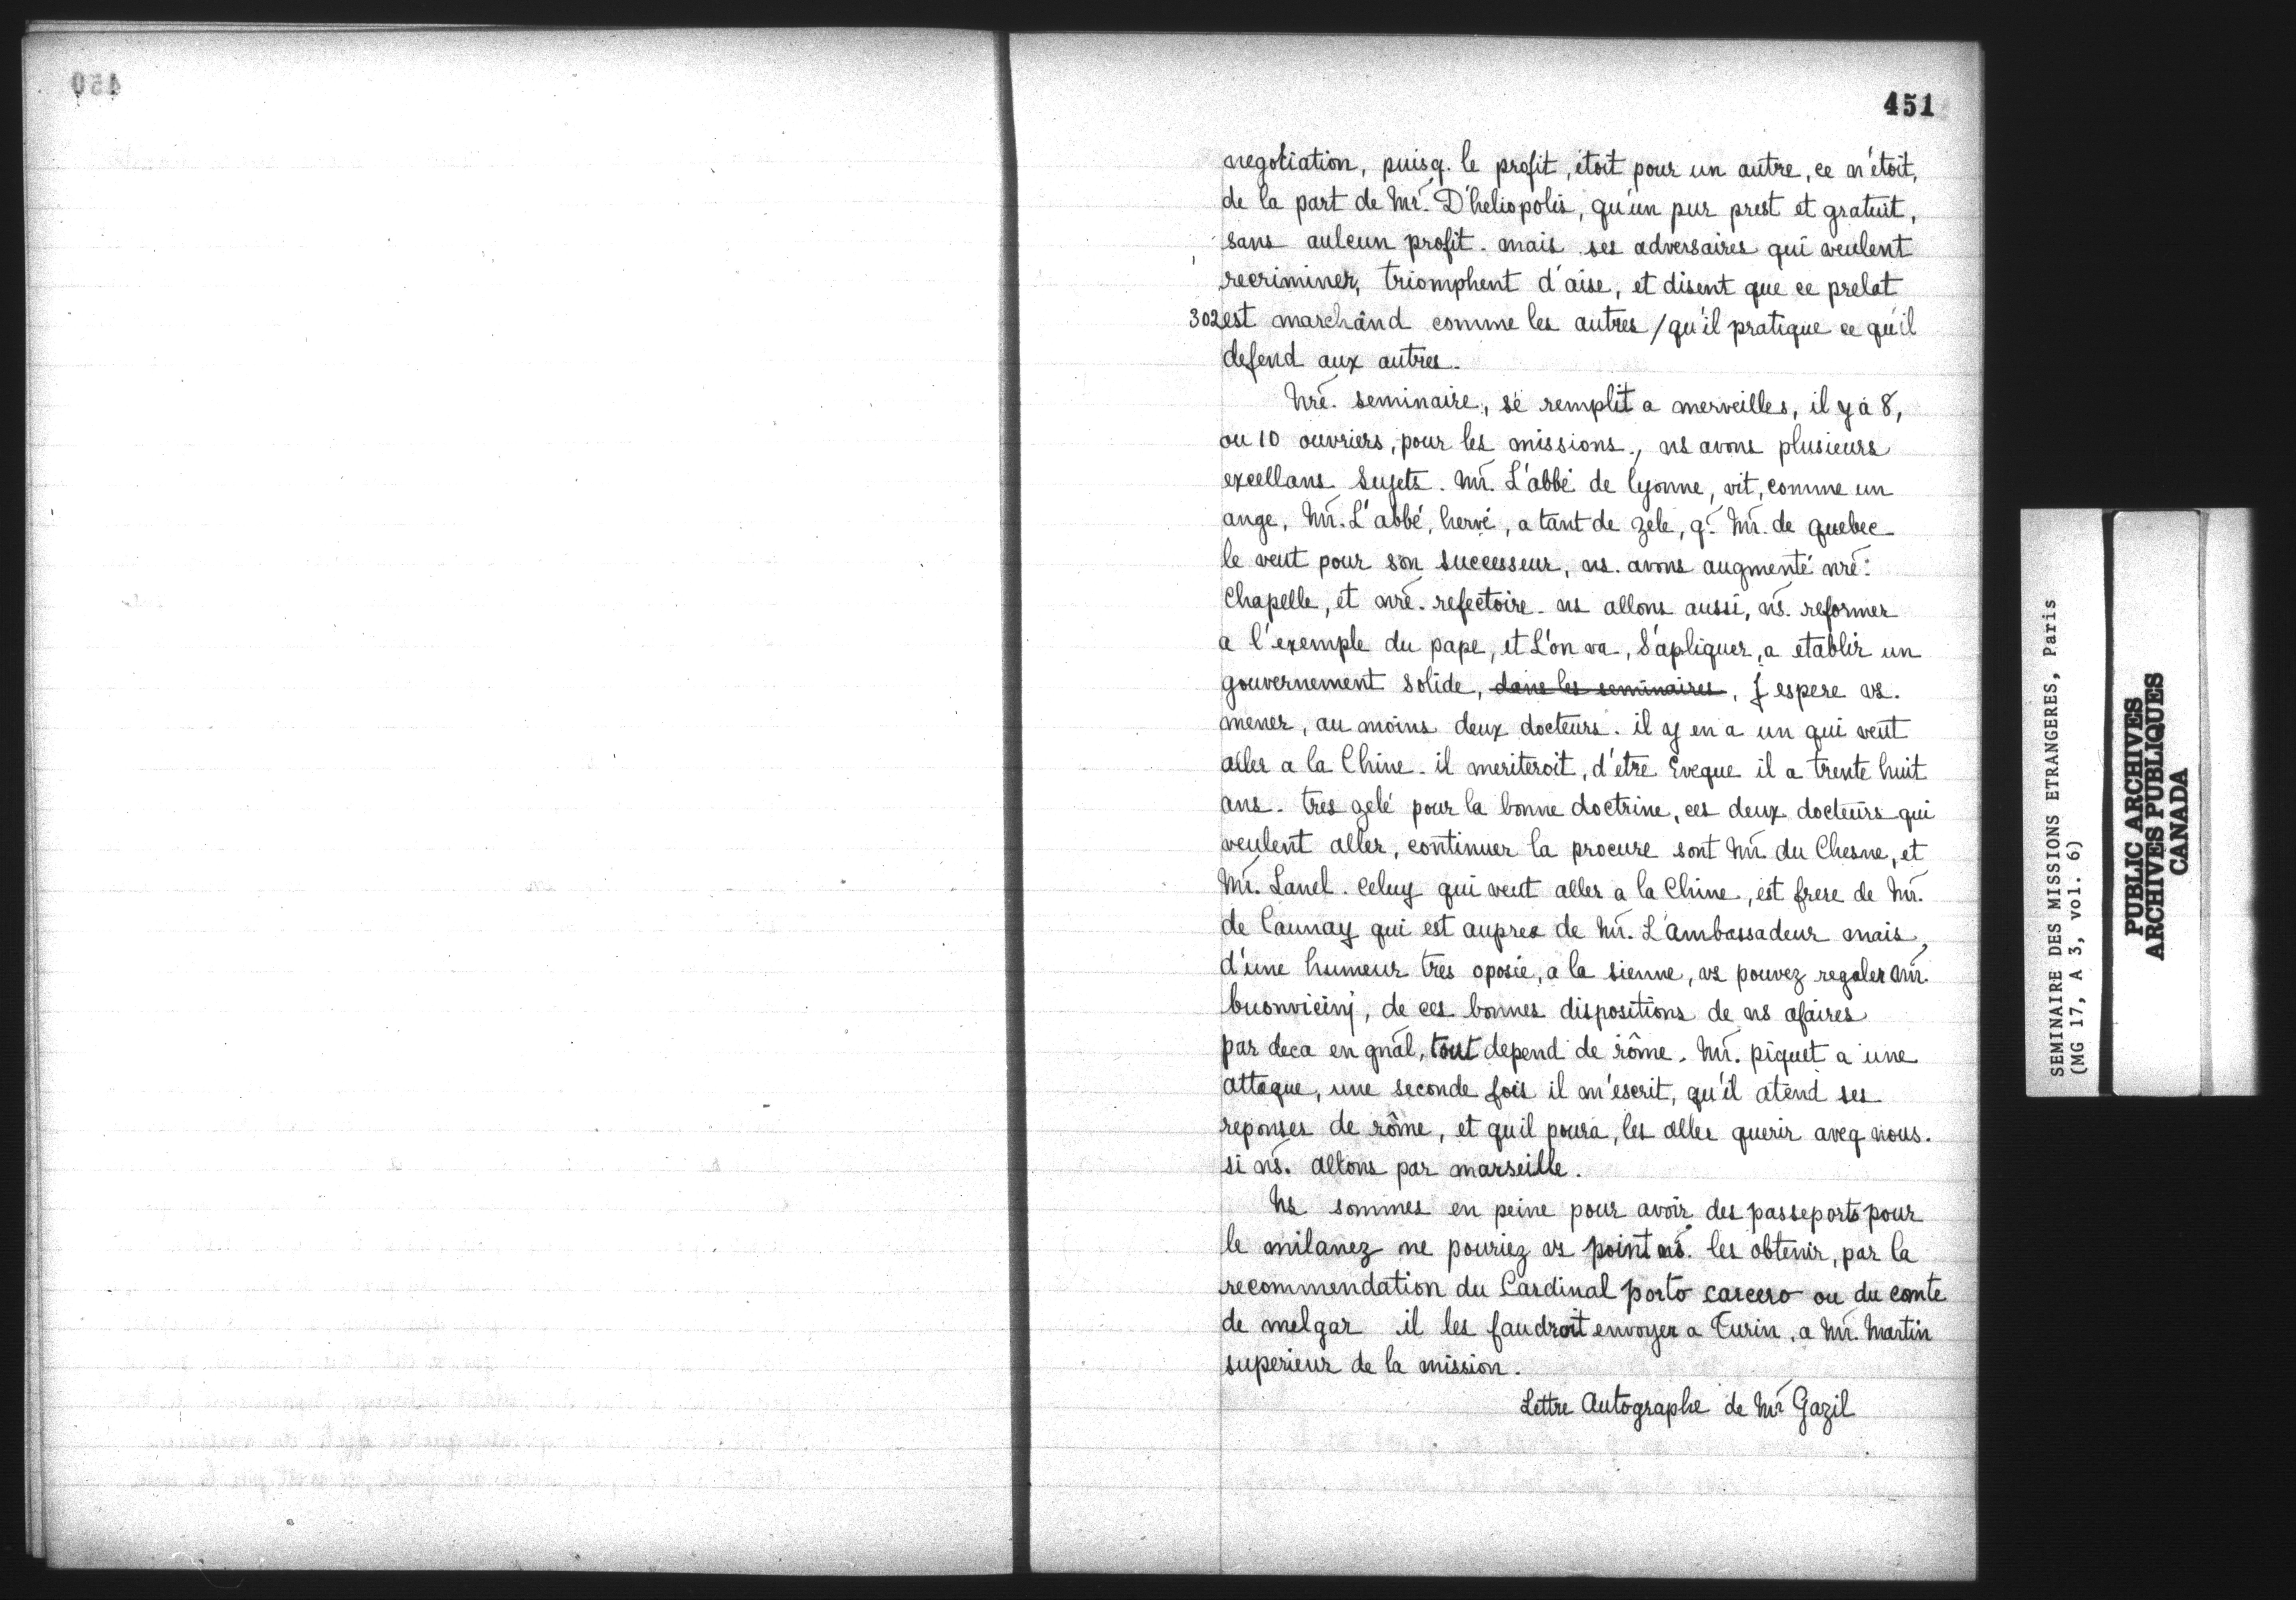 451
negotiation, puisq. le profit, étoit pour un autre, ce n'étoit,
de la part de Mr. D'heliopolis, qu'un pur prest et gratuit,
sans aulcun profit. mais ses adversaires qui veulent
recriminer, triomphent d'aise, et disent que ce prelat
302 est marchând comme les autres / qu'il pratique ce qu'il
defend aux autres.
Nre. seminaire, se remplit a merveilles, il y à 8,
ou 10 ouvriers, pour les missions., ns avons plusieurs
excellans Sujets. Mr. L'abbé de lyonne, vit, comme un
ange, Mr. L'abbé, hervé, a tant de zele, q. Mr. de quebec
le veut pour son successeur, ns. avons augmenté nre:
Chapelle, et nre. refectoire. ns allons aussi, ns. reformer
a l'exemple du pape, et L'on va, S'apliquer, a etablir un
gouvernement solide, dans les seminaires, j espere vs.
mener, au moins deux docteurs. il y en a un qui veut
aller a la Chine. il meriteroit, d'etre Eveque il a trente huit
ans. tres zelé pour la bonne doctrine, ces deux docteurs qui
veulent aller, continuer la procure sont Mr du Chesne, et
Mr. Lanel. celuy qui veut aller a la Chine, est frere de Mr.
de Launay qui est aupres de Mr. L'ambassadeur mais,
d'une humeur tres oposée, a la sienne, vs pouvez regaler Mr.
buonvicinj, de ces bonnes dispositions de ns afaires
par deca en gnal, tout depend de rôme. Mr. piquet a une
attaque, une seconde fois il m'escrit, qu'il atend ses
reponses de rôme, et quil poura, les aller querir aveq nous.
si ns. allons par marseille.
Ns sommes en peine pour avoir des passeports pour
le milanez ne pouriez vs point ns. les obtenir, par la
recommendation du Cardinal porto carcero ou du conte
de melgar il les faudroit envoyer a Turin, a Mr. Martin
superieur de la mission.
Lettre Autographe de Mr Gazil
450
SEMINAIRE DES MISSIONS ETRANGERES, Paris
(MG 17, A 3, vol. 6)
PUBLIC ARCHIVES
ARCHIVES PUBLIQUES
CANADA